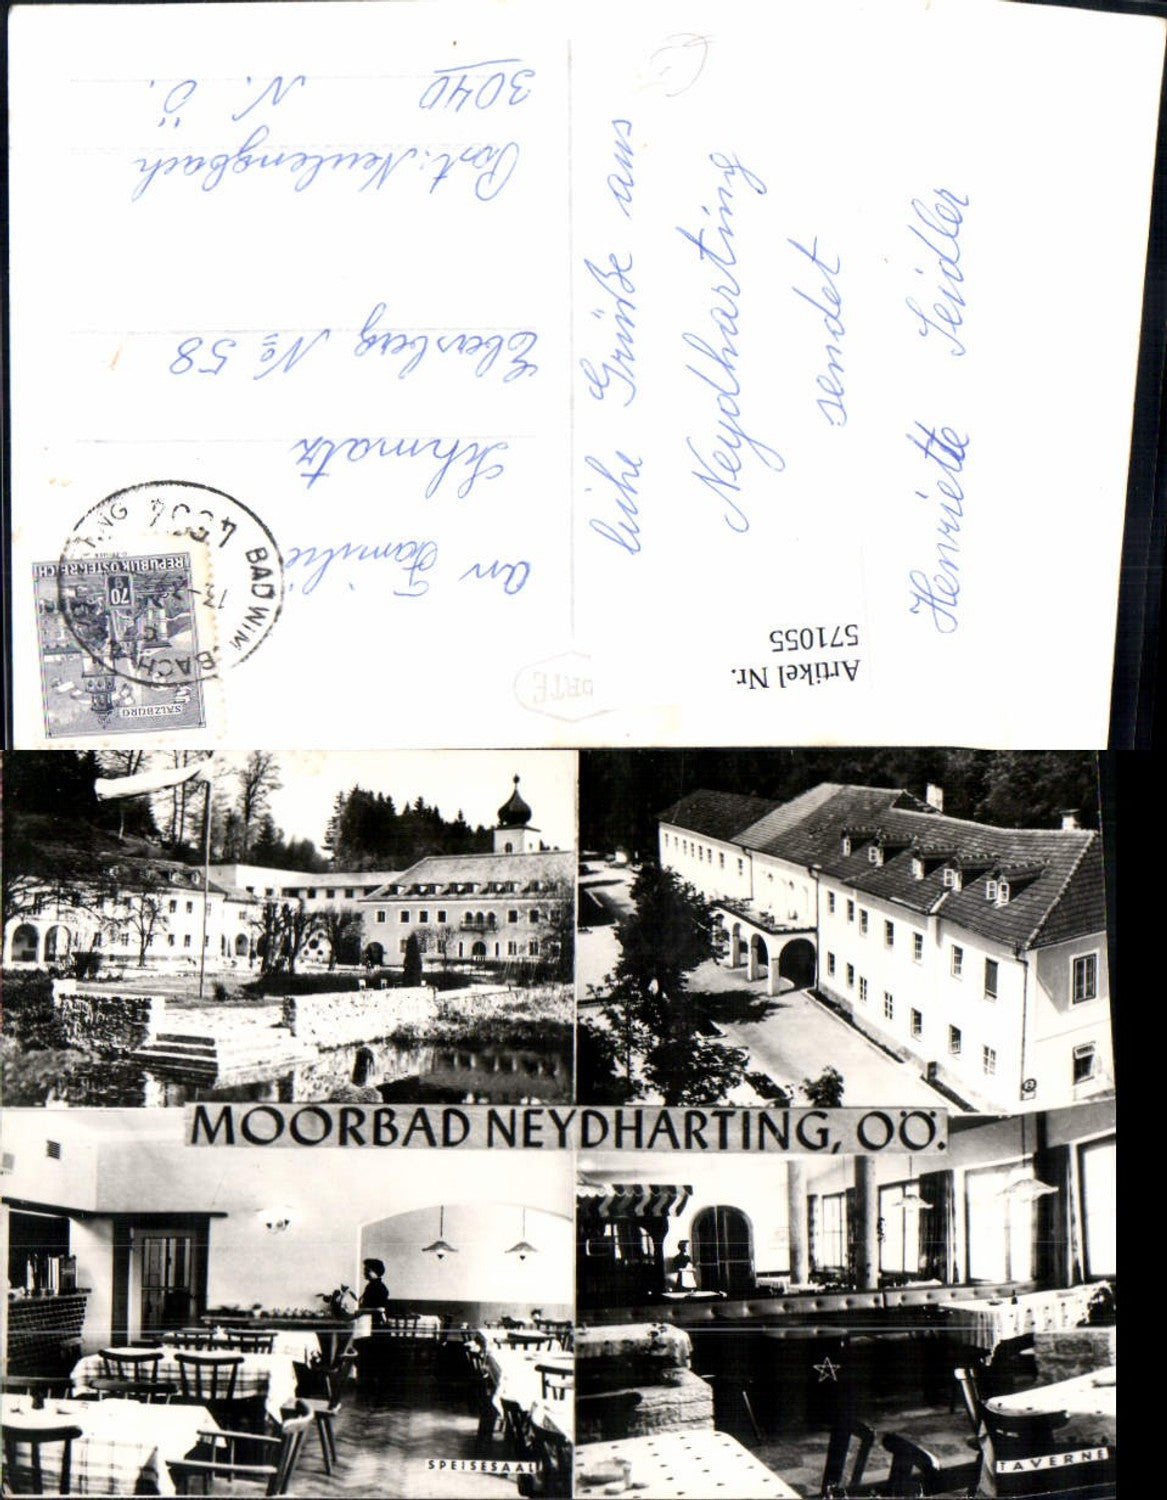 liebe Grüße aus
Neydharting
sendet
Henriette Seidler
An
Familie
Schmatz
Ebersberg No 58
Post: Neulengbach
3040 N. Ö.
REPUBLIK ÖSTERREICH
70
SALZBURG
4654 BAD WIMSBACH
Artikel Nr.
571055
MOORBAD NEYDHARTING, OÖ.
SPEISESAAL
TAVERNE